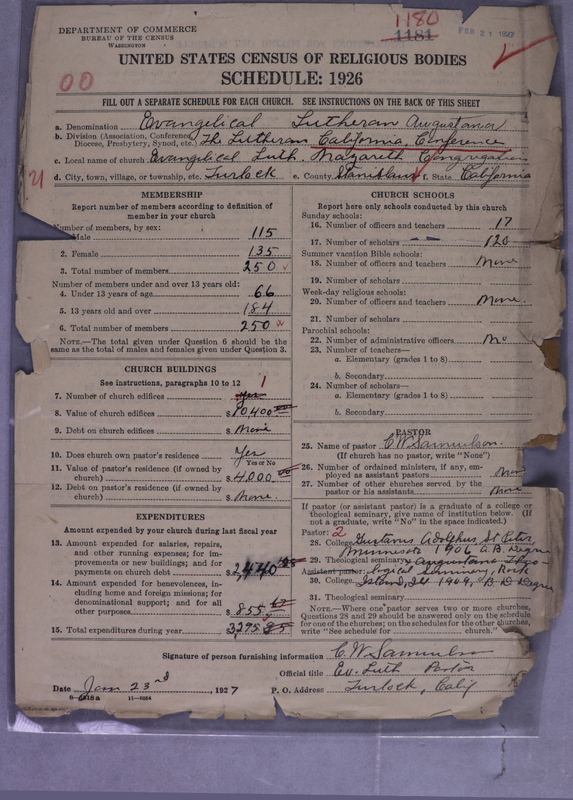 1180
1181
FEB 21 1927
DEPARTMENT OF COMMERCE
BUREAU OF THE CENSUS
WASHINGTON
UNITED STATES CENSUS OF RELIGIOUS BODIES
SCHEDULE: 1926
00
FILL OUT A SEPARATE SCHEDULE FOR EACH CHURCH. SEE INSTRUCTIONS ON THE BACK OF THIS SHEET
a. Denomination Evangelical Lutheran Augustana
b. Division (Association, Conference, Diocese, Presbytery, Synod, etc.) The Lutheran California, Conference
c. Local name of church Evangelical Luth. Nazareth Congregation
21
d. City, town, village, or township, etc. Turlock e. County Stanislaus f. State California
MEMBERSHIP
Report number of members according to definition of
member in your church
Number of members, by sex:
Male 115
2. Female 135
3. Total number of members 250
Number of members under and over 13 years old:
4. Under 13 years of age 66
5. 13 years old and over 184
6. Total number of members 250
NOTE.—The total given under Question 6 should be the
same as the total of males and females given under Question 3.
CHURCH BUILDINGS
See instructions, paragraphs 10 to 12
1
7. Number of church edifices Yes
8. Value of church edifices $10,400
9. Debt on church edifices $ None
10. Does church own pastor's residence? Yes
Yes or No
11. Value of pastor's residence (if owned by
church) $4,000
12. Debt on pastor's residence (if owned by
church) $ None.
EXPENDITURES
Amount expended by your church during last fiscal year
13. Amount expended for salaries, repairs,
and other running expenses; for im-
provements or new buildings; and for
payments on church debt $2440
14. Amount expended for benevolences, in-
cluding home and foreign missions; for
denominational support; and for all
other purposes $855
15. Total expenditures during year 3295
CHURCH SCHOOLS
Report here only schools conducted by this church
Sunday schools:
16. Number of officers and teachers 17
17. Number of scholars 120
Summer vacation Bible schools:
18. Number of officers and teachers None
19. Number of scholars
Week-day religious schools:
20. Number of officers and teachers None.
21. Number of scholars
Parochial schools:
22. Number of administrative officers No
23. Number of teachers—
a. Elementary (grades 1 to 8)
b. Secondary
24. Number of scholars—
a. Elementary (grades 1 to 8)
b. Secondary
PASTOR
25. Name of pastor C. W. Samuelson.
(If church has no pastor, write "None")
26. Number of ordained ministers, if any, em-
ployed as assistant pastors
27. Number of other churches served by the
pastor or his assistants None
If pastor (or assistant pastor) is a graduate of a college or
theological seminary, give name of institution below. (If
not a graduate, write "No" in the space indicated.)
Pastor: 2
28. College Gustavus Adolphus, St. Peter,
Minnesota 1906 A.B. Degree
29. Theological seminary Augustana Theo-
Assistant pastor: logical Seminary, Rock
30. College Island, Ill 1909, B D Degree
31. Theological seminary
NOTE.—Where one pastor serves two or more churches,
Questions 28 and 29 should be answered only on the schedule
for one of the churches; on the schedules for the other churches,
write "See schedule for church."
Signature of person furnishing information C. W. Samuelson
Official title Ev. Luth Pastor
Date Jan 23rd, 1927 P. O. Address Turlock, Calif
11—6584